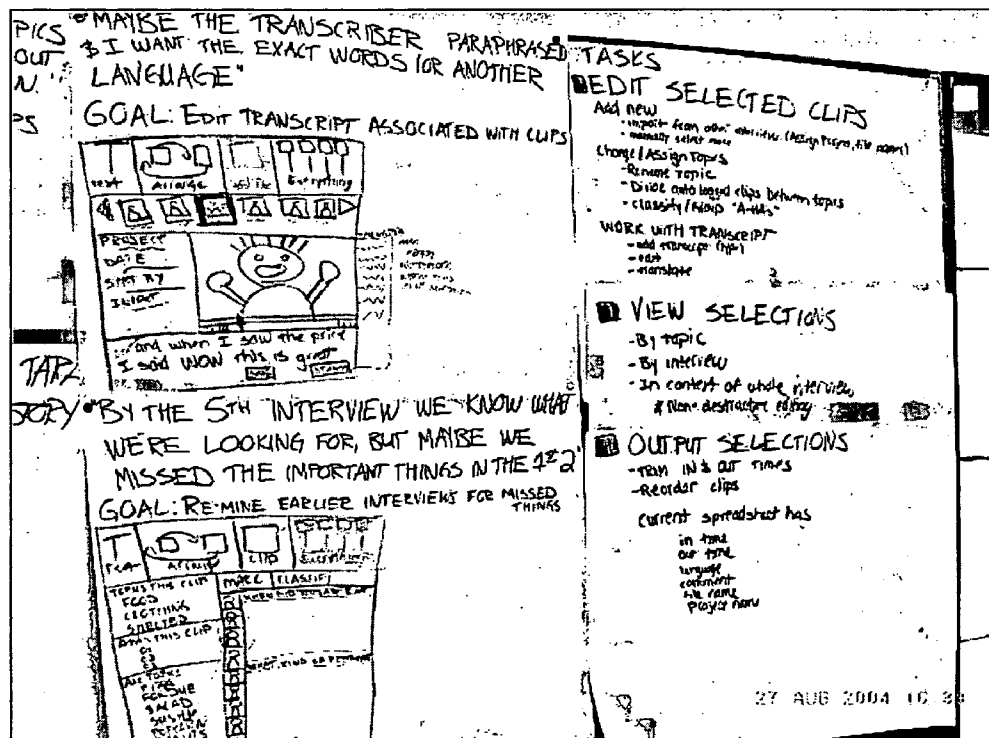 PICS
OUT
N.
PS
• "MAYBE THE TRANSCRIBER PARAPHRASED
& I WANT THE EXACT WORDS FOR ANOTHER
LANGUAGE"
GOAL: EDIT TRANSCRIPT ASSOCIATED WITH CLIPS
Text
Arrange
Everything
PROJECT
DATE
SHOT BY
... and when I saw the price
I said WOW this is great
TAPE
STORY
• "BY THE 5TH INTERVIEW WE KNOW WHAT
WE'RE LOOKING FOR, BUT MAYBE WE
MISSED THE IMPORTANT THINGS IN THE 1ST 2"
GOAL: RE-MINE EARLIER INTERVIEWS FOR MISSED
THINGS
Text
Arrange
CLIP
Everything
TOPICS THIS CLIP
FOOD
LIGHTING
SMELTED
MARK
CLASSIFY
THIS CLIP
FONDUE
SALAD
TASKS
EDIT SELECTED CLIPS
Add new
- import from other interviews (Assign Topics, file names)
- manually select more
Change/Assign Topics
- Rename Topic
- Divide auto logged clips between topics
- classify/Group "A-Has"
WORK WITH TRANSCRIPT
- add transcript (type)
- edit
- translate
VIEW SELECTIONS
- By topic
- By interview
- In context of whole interview
* Non-destructive editing
OUTPUT SELECTIONS
- TRIM IN & OUT TIMES
- Reorder clips
Current spreadsheet has
in time
out time
language
comment
file name
Project name
27 AUG 2004 16